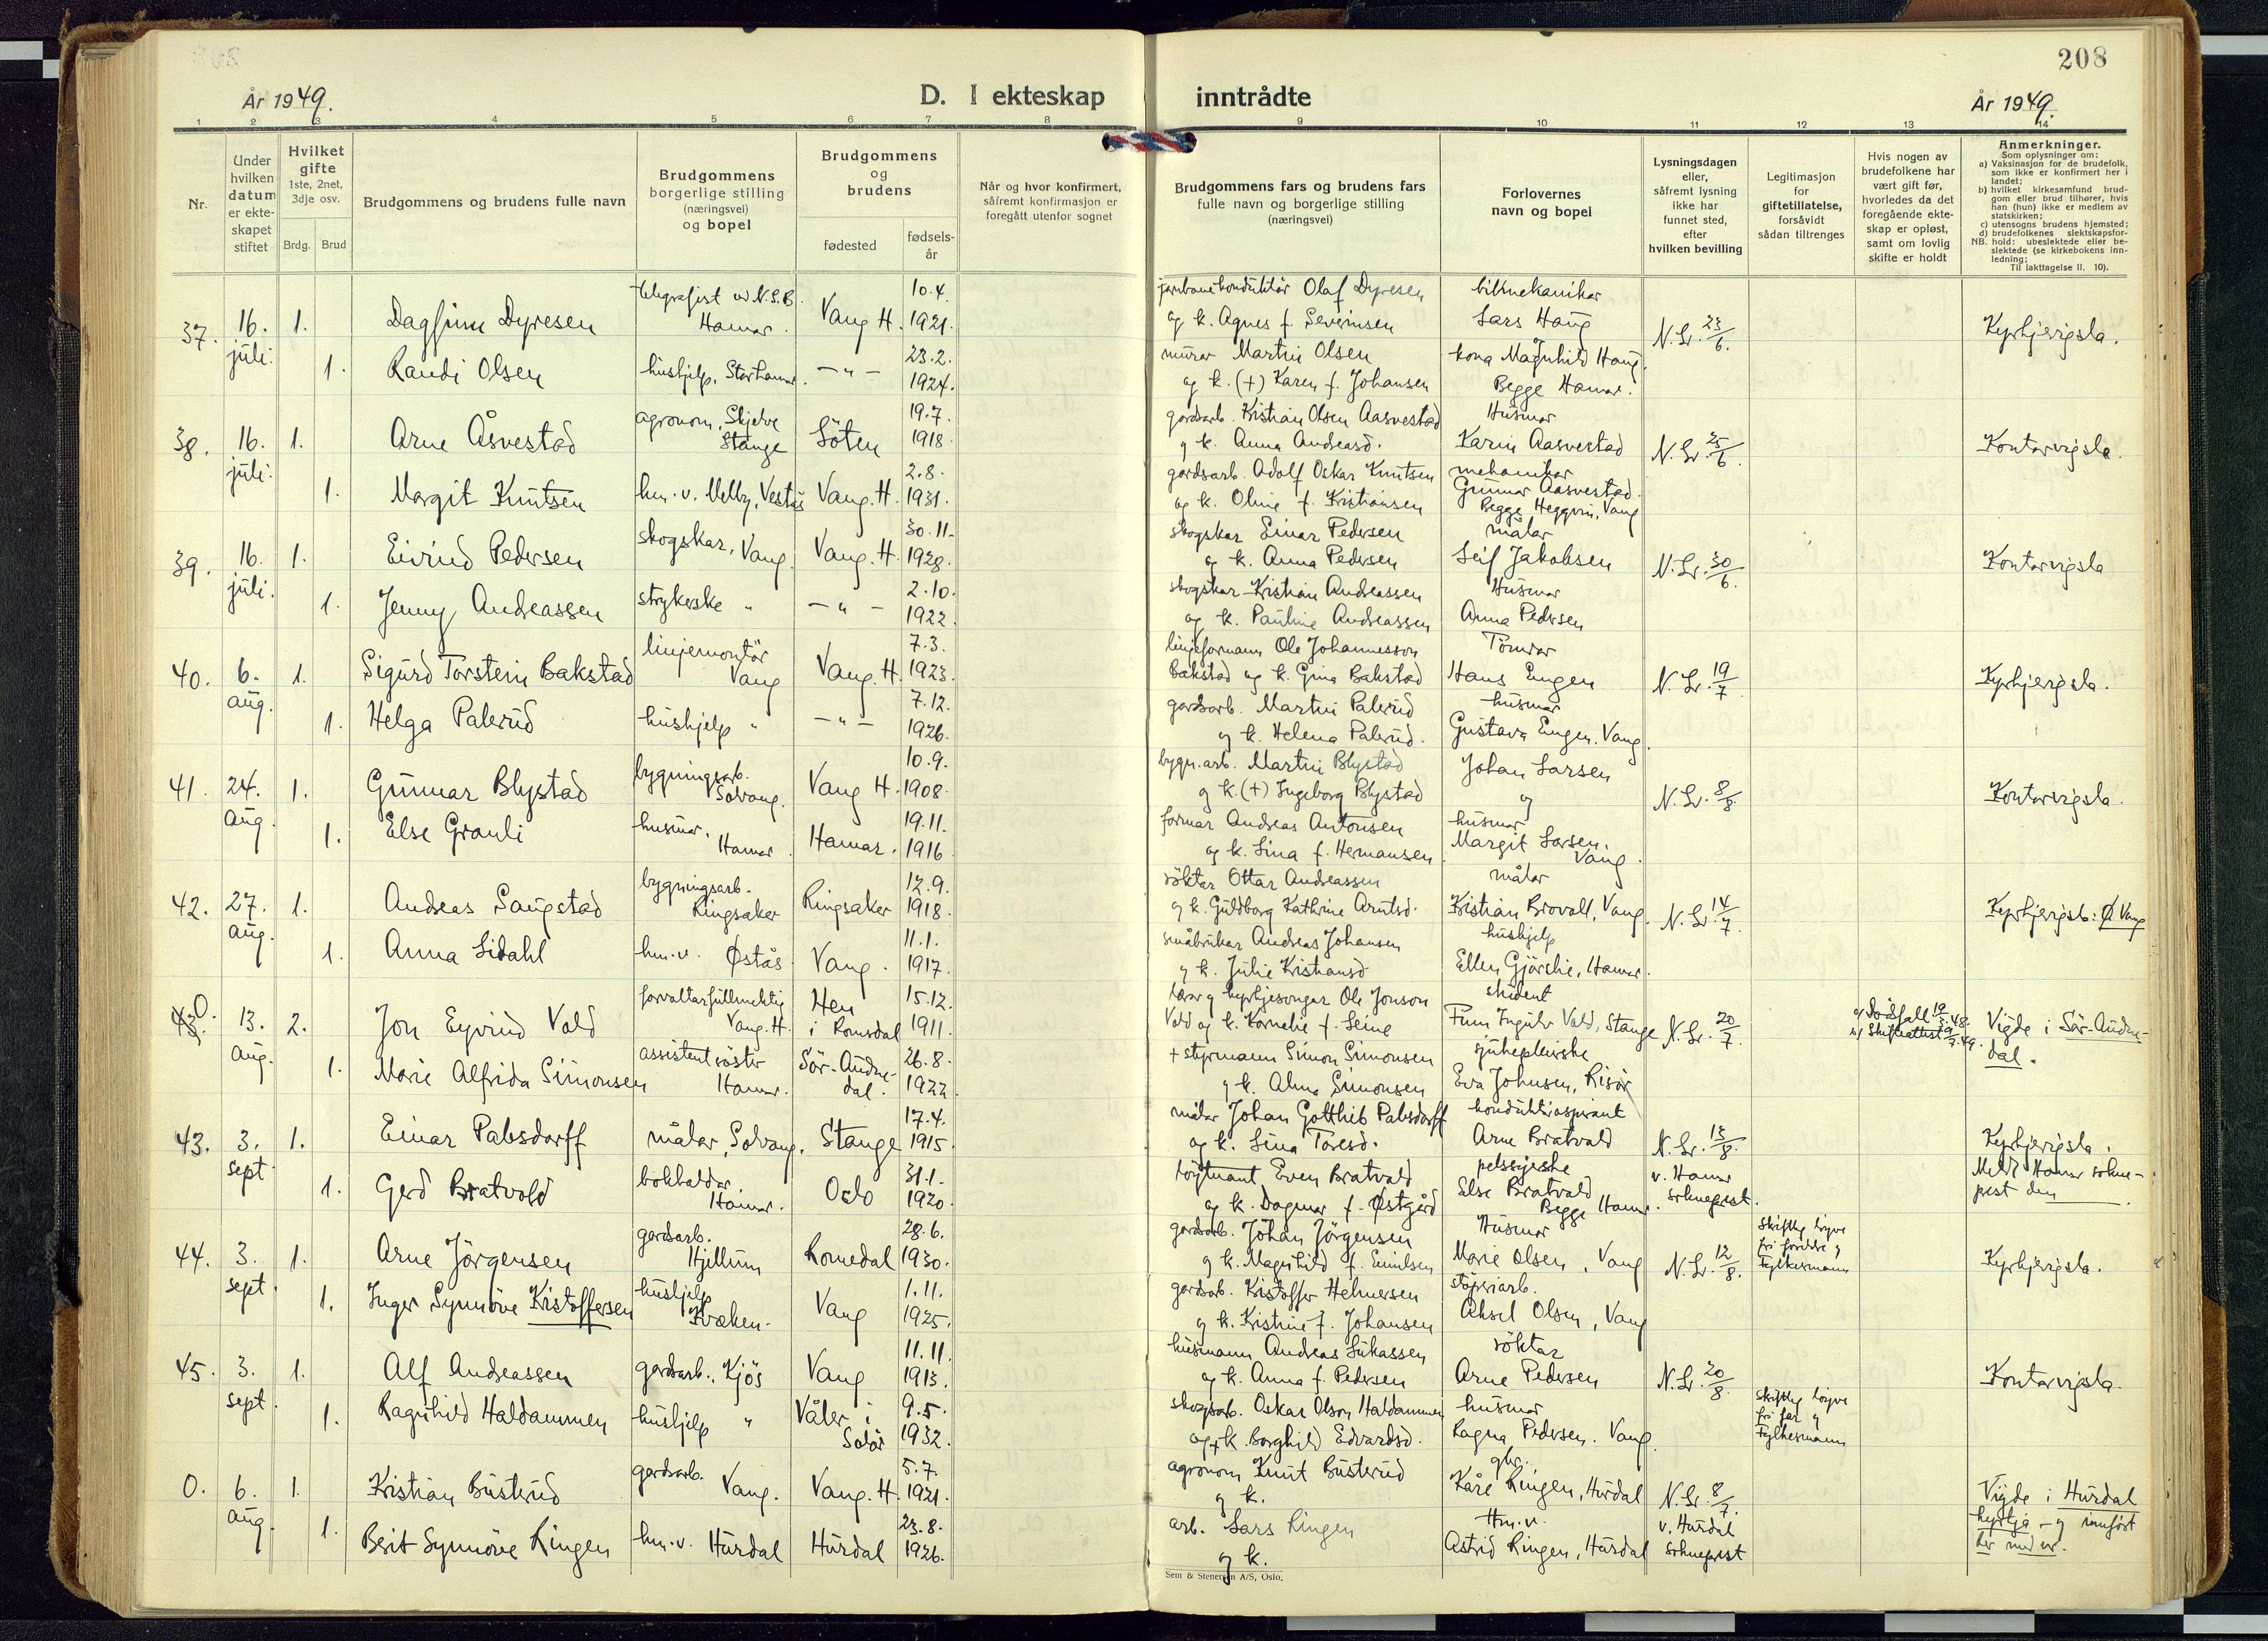 208
År 1949.
D. I ekteskap
inntrådte
År 1949.
1 2 3 4 5 6 7 8 9 10 11 12 13 14
Nr.
Under hvilken datum er ekteskapet stiftet
Hvilket gifte
1ste, 2net, 3dje osv.
Brdg. Brud
Brudgommens og brudens fulle navn
Brudgommens borgerlige stilling (næringsvei) og bopel
Brudgommens og brudens
fødested
fødselsår
Når og hvor konfirmert, såfremt konfirmasjon er foregått utenfor sognet
Brudgommens fars og brudens fars fulle navn og borgerlige stilling (næringsvei)
Forlovernes navn og bopel
Lysningsdagen eller, såfremt lysning ikke har funnet sted, efter hvilken bevilling
Legitimasjon for giftetillatelse, forsåvidt sådan tiltrenges
Hvis nogen av brudefolkene har vært gift før, hvorledes da det foregående ekteskap er opløst, samt om lovlig skifte er holdt
Anmerkninger.
Som oplysninger om:
a) Vaksinasjon for de brudefolk, som ikke er konfirmert her i landet;
b) hvilket kirkesamfund brudgom eller brud tilhører, hvis han (hun) ikke er medlem av statskirken;
c) utensogns brudens hjemsted;
d) brudefolkenes slektskapsforhold: ubeslektede eller beslektede (se kirkebokens innledning;
NB.
Til iakttagelse II. 10).
37. 16. juli. 1. Dagfinn Dyresen telegrafist v/ N.S.B. Hamar. Vang H. 10.4. 1921. jernbanekonduktör Olaf Dyresen og k. Agnes f. Severinsen bilmekanikar Lars Haug N. Lr. 23/6. Kyrkjevigsla.
1. Randi Olsen hushjelp, Storhamar. -"- 23.2. 1924. murer Martin Olsen og k. (+) Karen f. Johansen kona Magnhild Haug. Begge Hamar.
38. 16. juli. 1. Arne Åsvestad agronom, Skjelve Stange Löten 19.7. 1918. gardsarb. Kristian Olsen Aasvestad og k. Anna Andreasd. Husmor Karin Aasvestad N. Lr. 25/6. Kontorvigsla.
1. Margit Knutsen hm. v. Melby, Vestås Vang. H. 2.8. 1931. gardsarb. Adolf Oskar Knutsen og k. Oline f. Kristiansen mekanikar Gunnar Aasvestad. Begge Heggvin, Vang
39. 16. juli. 1. Eivind Pedersen skogskar, Vang. Vang. H. 30.11. 1928. skogskar Einar Pedersen og k. Anna Pedersen målar Leif Jakobsen N. Lr. 30/6. Kontorvigsla
1. Jenny Andreassen strykerske " -"- 2.10. 1922. skogskar Kristian Andreassen og k. Pauline Andreassen Husmor Anna Pedersen
40. 6. aug. 1. Sigurd Torstein Bakstad linjemontör Vang Vang. H. 7.3. 1923. linjeformann Ole Johannesson Bakstad og k. Gina Bakstad Tömrar Hans Engen N. Lr. 19/7. Kyrkjevigsla.
1. Helga Palerud hushjelp " -"- 7.12. 1926. gardsarb. Martin Palerud og k. Helena Palerud. husmor Gustava Engen. Vang.
41. 24. aug. 1. Gunnar Blystad bygningsarb. Solvang. Vang H. 10.9. 1908. bygn.arb. Martin Blystad og k. (+) Ingeborg Blystad Johan Larsen og N. Lr. 8/8. Kontorvigsla.
1. Else Granli husmor. Hamar. Hamar. 19.11. 1916 formar Andreas Antonsen og k. Lina f. Hermansen. husmor Margit Larsen. Vang.
42. 27. aug. 1. Andreas Saugstad bygningsarb. Ringsaker Ringsaker 12.9. 1918. röktar Ottar Andreassen og k. Guldborg Kathrine Arntsd. målar Kristian Brovoll, Vang. N. Lr. 14/7. Kyrkjevigsl: Ø Vang
1. Anna Lidahl hm. v. Østås Vang. 11.1. 1917. småbrukar Andreas Johansen og k. Julie Kristiansd. hushjelp Ellen Gjörslie, Hamar.
43. 0. 13. aug. 2. Jon Eyvind Vold forvaltarfullmektig Vang. H. Hen i Romsdal 15.12. 1911. lærar og kyrkjesongar Ole Jonson Vold og k. Kornelie f. Leine student Finn Ingulv Vold, Stange N. Lr. 20/7. a) Dödsfall 19/3.48. b) Skifteattest 9/7.49. Vigde i Sör-Audnedal.
1. Marie Alfrida Simonsen assistentsöster Hamar. Sör-Audnedal. 26.8. 1922. + styrmann Simon Simonsen og k. Alma Simonsen sjukepleierske Eva Johnsen, Risör
43. 3. sept. 1. Einar Palsdorff målar, Solvang. Stange 17.4. 1915. målar Johan Gottlieb Palsdorff og k. Lina Toresd. konduktöraspirant Arne Bratvold N. Lr. 13/8. Kyrkjevigsla.
1. Gerd Bratvold bokhaldar. Hamar. Oslo 31.1. 1920. löytnant Even Bratvold og k. Dagmar f. Østgård pelssyerske Else Bratvold Begge Hamar. v. Hamar sokneprest. Meldt Hamar sokneprest den
44. 3. sept. 1. Arne Jörgensen gardsarb. Hjellum Romedal 28.6. 1930. gardsarb. Johan Jörgensen og k. Magnhild f. Emilsen Husmor Marie Olsen, Vang N. Lr. 12/8. Skriftleg löyve fri foreldre og Fylkesmann Kyrkjevigsla.
1. Inger Synnöve Kristoffersen hushjelp Kræken. Vang 1.11. 1925. gardsarb. Kristoffer Helmersen og k. Kristine f. Johansen stöperiarb. Aksel Olsen, Vang
45. 3. sept. 1. Alf Andreassen gardsarb., Kjös Vang 11.11. 1913. husmann Andreas Lukassen og k. Anna f. Pedersen röktar Arne Pedersen N. Lr. 20/8. Kontorvigsla.
1. Ragnhild Haldammen hushjelp " Våler i Solör 9.5. 1932. skogsarb. Oskar Olson Haldammen og + k. Borghild Edvardsd. husmor Ragna Pedersen. Vang. Skriftleg löyve fri far og Fylkesmann
0. 6. aug. 1. Kristian Busterud gardsarb. Vang. Vang. H. 5.7. 1921. agronom Knut Busterud og k. gbr. Kåre Ringen, Hurdal N. Lr. 8/7. Vigde i Hurdal kyrkja - og innfört der med nr.
1. Berit Synnöve Ringen hm. v. Hurdal Hurdal 23.8. 1926. arb. Lars Ringen og k. Hm. v. Astrid Ringen, Hurdal v. Hurdal sokneprest
Sem & Stenersen A/S, Oslo.